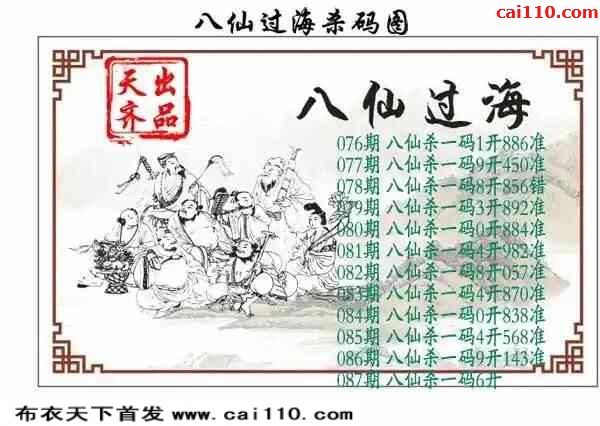 八仙过海杀码图
cai110.com
天齐出品
八仙过海
076期 八仙杀一码1开886准
077期 八仙杀一码9开450准
078期 八仙杀一码8开856错
079期 八仙杀一码3开892准
080期 八仙杀一码0开884准
081期 八仙杀一码4开982准
082期 八仙杀一码8开057准
083期 八仙杀一码4开870准
084期 八仙杀一码0开838准
085期 八仙杀一码4开568准
086期 八仙杀一码9开143准
087期 八仙杀一码6开
布衣天下首发 www.cai110.com